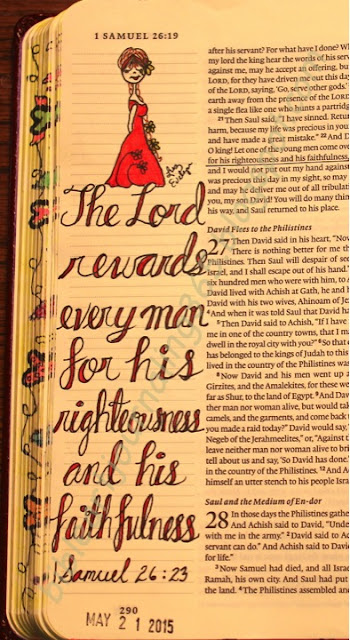 1 SAMUEL 26:19
The Lord
rewards
every man
for his
righteousness
and his
faithfulness
1 Samuel 26:23
290
MAY 2 1 2015
after his servant? For what have I done? W
my lord the king hear the words of his serv
against me, may he accept an offering, but
LORD, for they have driven me out this day
of the LORD, saying, 'Go, serve other gods.'
earth away from the presence of the LORD
a single flea like one who hunts a partridg
21 Then Saul said, "I have sinned. Retur
harm, because my life was precious in your
and have made a great mistake." 22 And D
O king! Let one of the young men come ove
for his righteousness and his faithfulness,
and I would not put out my hand against
was precious this day in my sight, so may
and may he deliver me out of all tribulati
you, my son David! You will do many thin
his way, and Saul returned to his place.
David Flees to the Philistines
27 Then David said in his heart, "Now
There is nothing better for me th
Philistines. Then Saul will despair of see
Israel, and I shall escape out of his hand."
six hundred men who were with him, to A
David lived with Achish at Gath, he and h
David with his two wives, Ahinoam of Je
4 And when it was told Saul that David ha
5 Then David said to Achish, "If I have
me in one of the country towns, that I ma
dwell in the royal city with you?" 6 So that d
has belonged to the kings of Judah to this
lived in the country of the Philistines was
8 Now David and his men went up a
Girzites, and the Amalekites, for these we
far as Shur, to the land of Egypt. 9 And Dav
ther man nor woman alive, but would tak
camels, and the garments, and come back
you made a raid today?" David would say,
Negeb of the Jerahmeelites," or, "Against t
leave neither man nor woman alive to brin
tell about us and say, 'So David has done.'
in the country of the Philistines. 12 And Ac
himself an utter stench to his people Israe
Saul and the Medium of En-dor
28 In those days the Philistines gathe
And Achish said to David, "Unde
with me in the army." 2 David said to Ac
servant can do." And Achish said to David
for life."
3 Now Samuel had died, and all Israel
Ramah, his own city. And Saul had put
the land. 4 The Philistines assembled and